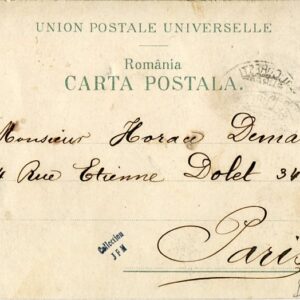 UNION POSTALE UNIVERSELLE
România
CARTA POSTALA.
Monsieur Horace Dema
4 Rue Etienne Dolet 34
Paris
Collection
J F M